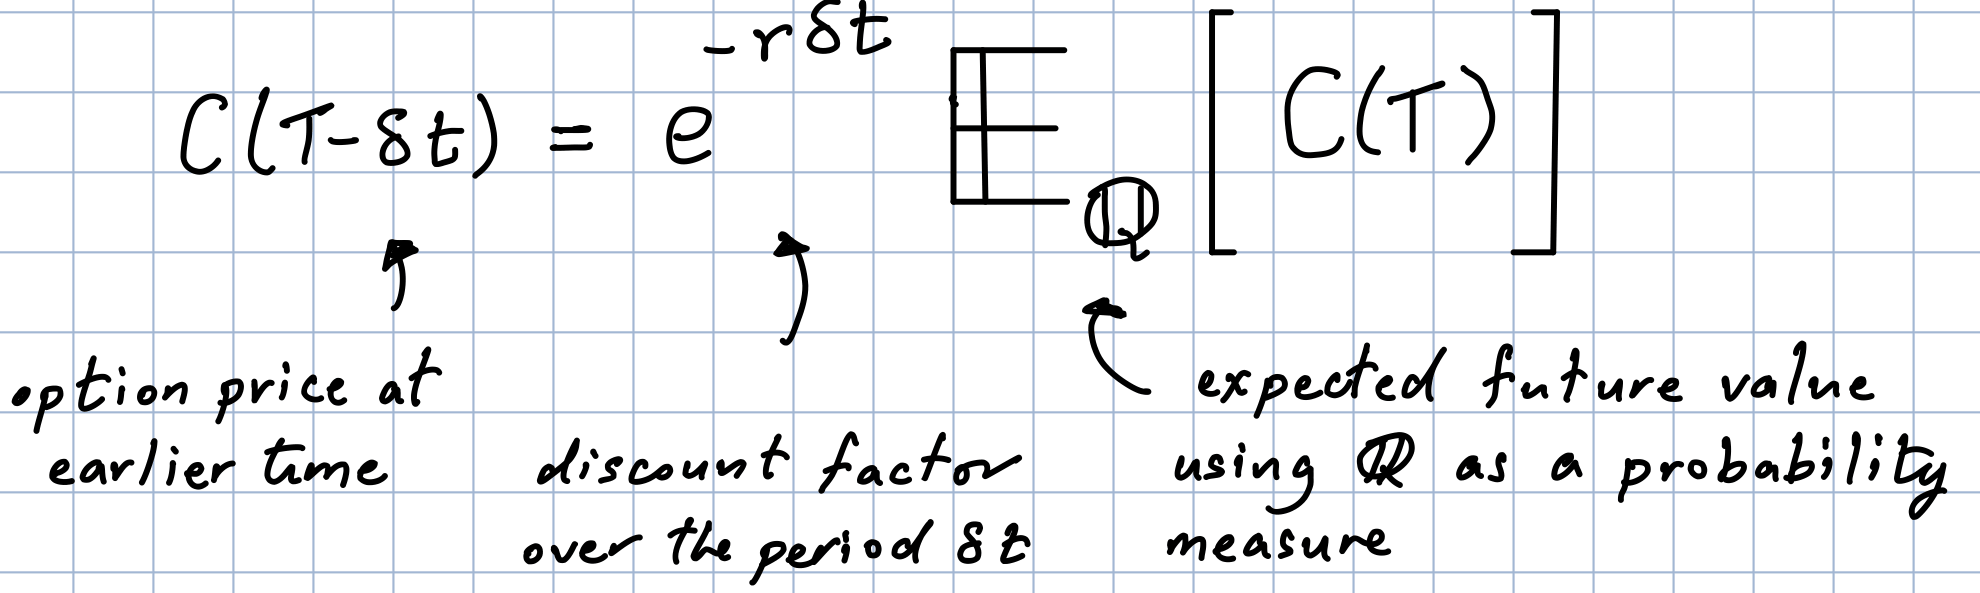 C(T-δt) = e^{-rδt} 𝔼_ℚ [C(T)]
option price at
earlier time
discount factor
over the period δt
expected future value
using ℚ as a probability
measure